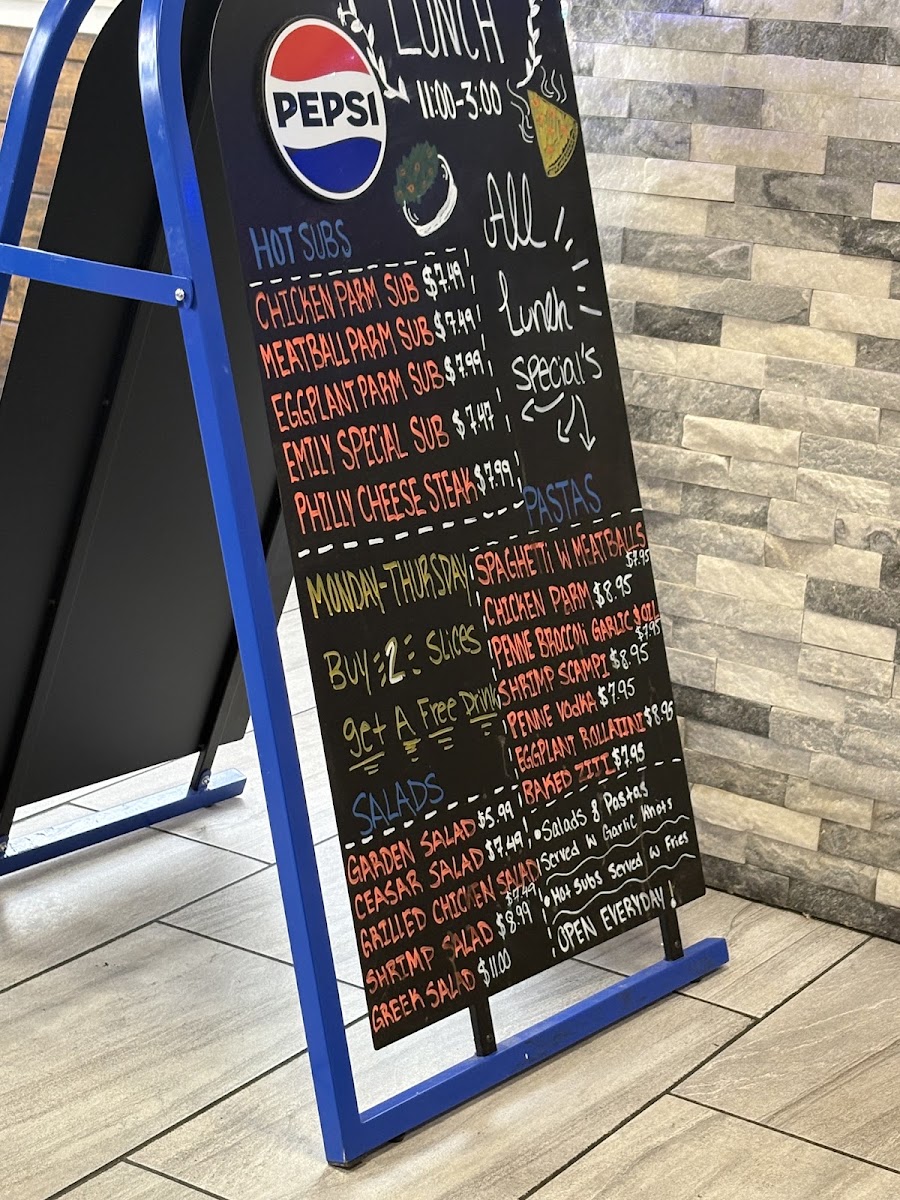 LUNCH
11:00-3:00
PEPSI
All
Lunch
special's
HOT SUBS
CHICKEN PARM SUB $7.49
MEATBALL PARM SUB $7.49
EGGPLANT PARM SUB $7.99
EMILY SPECIAL SUB $7.47
PHILLY CHEESE STEAK $7.99
MONDAY-THURSDAY
Buy 2 Slices
get A Free Drink
PASTAS
SPAGHETTI W MEATBALLS
$7.95
CHICKEN PARM $8.95
PENNE BROCCOLI GARLIC & OIL
$7.95
SHRIMP SCAMPI $8.95
PENNE VODKA $7.95
EGGPLANT ROLLATINI $8.95
BAKED ZITI $7.95
SALADS
GARDEN SALAD $5.99
CEASAR SALAD $7.49
GRILLED CHICKEN SALAD
$7.49
SHRIMP SALAD $8.99
GREEK SALAD $11.00
• Salads & Pastas
Served w Garlic Knots
• Hot Subs Served w Fries
OPEN EVERYDAY!